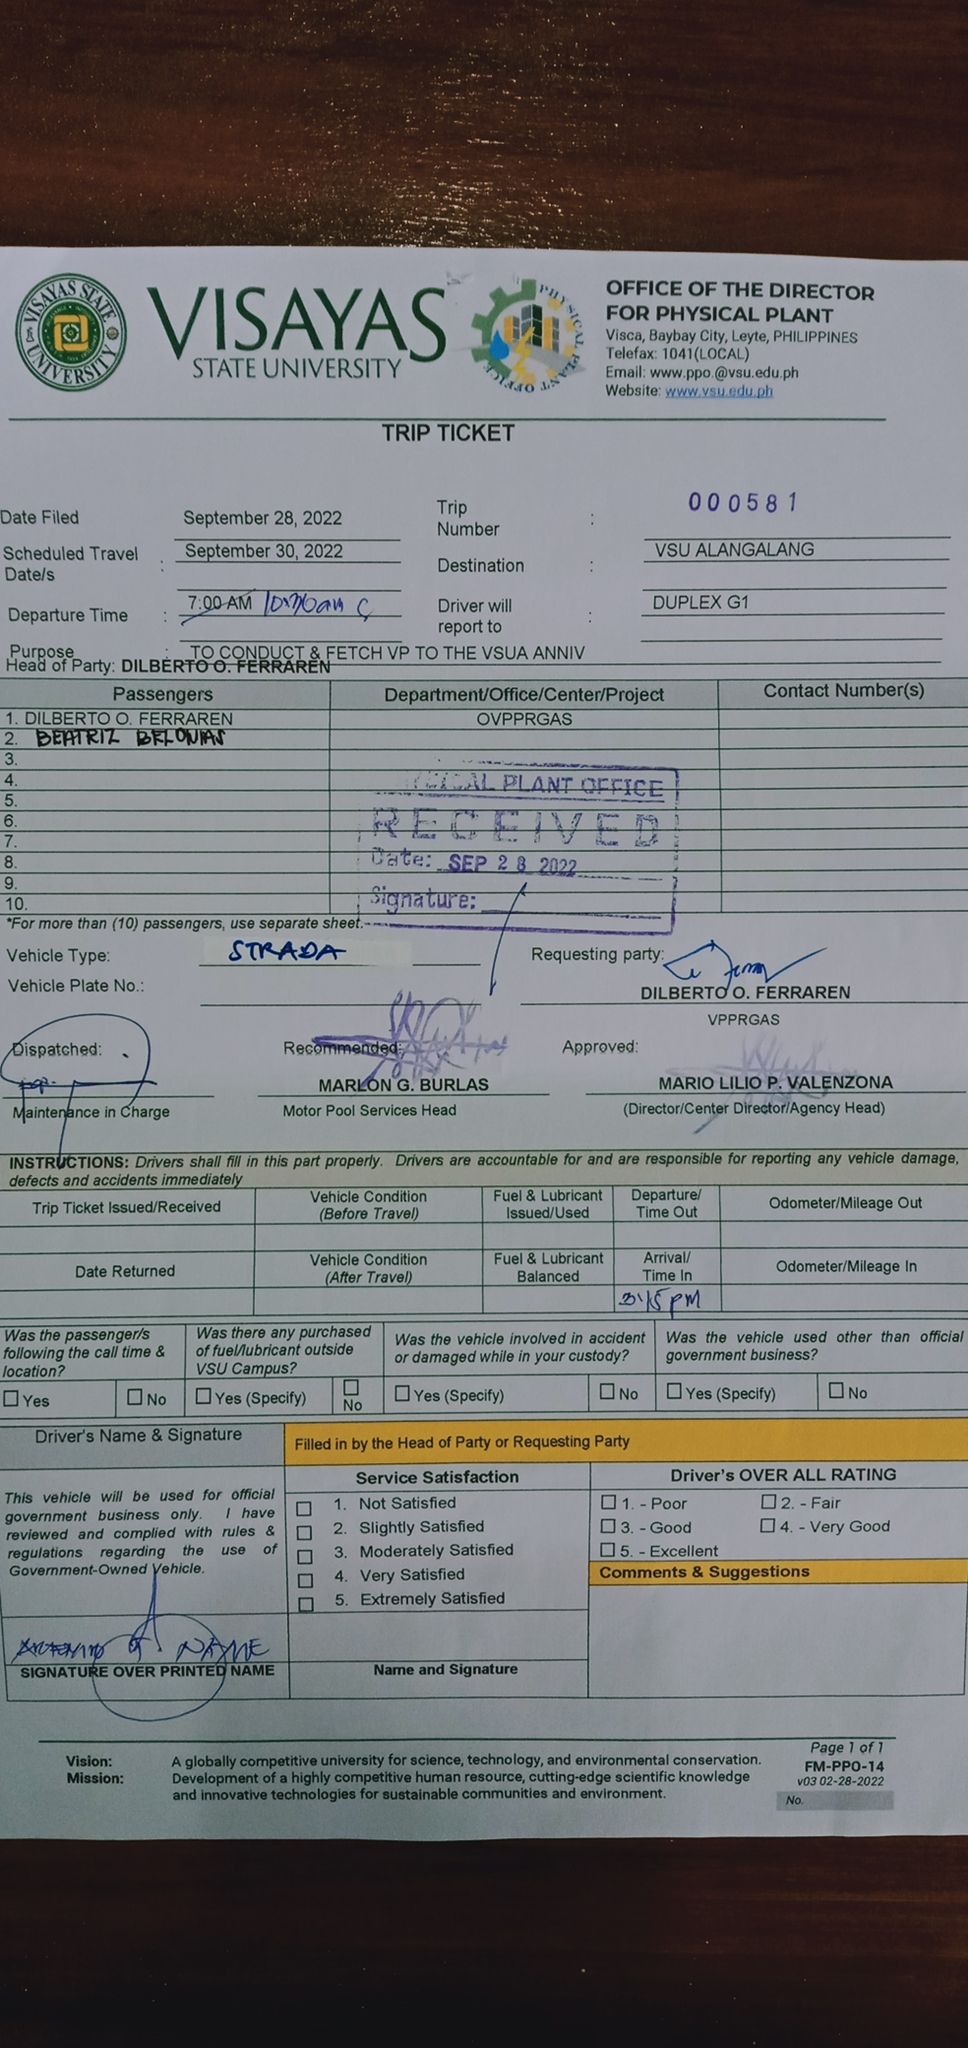 VISAYAS STATE UNIVERSITY
VISAYAS
STATE UNIVERSITY
PHYSICAL PLANT OFFICE
OFFICE OF THE DIRECTOR
FOR PHYSICAL PLANT
Visca, Baybay City, Leyte, PHILIPPINES
Telefax: 1041(LOCAL)
Email: www.ppo.@vsu.edu.ph
Website: www.vsu.edu.ph
TRIP TICKET
Date Filed September 28, 2022 Trip Number : 000581
Scheduled Travel Date/s : September 30, 2022 Destination : VSU ALANGALANG
Departure Time : 7:00 AM Driver will report to : DUPLEX G1
Purpose : TO CONDUCT & FETCH VP TO THE VSUA ANNIV
Head of Party: DILBERTO O. FERRAREN
Passengers Department/Office/Center/Project Contact Number(s)
1. DILBERTO O. FERRAREN OVPPRGAS
2. BEATRIZ BELONIAS
3.
4.
5.
6.
7.
8.
9.
10.
PLANT OFFICE
RECEIVED
Date: SEP 28 2022
Signature:
*For more than (10) passengers, use separate sheet.
Vehicle Type: STRADA Requesting party:
Vehicle Plate No.: DILBERTO O. FERRAREN
VPPRGAS
Dispatched: Recommended: Approved:
MARLON G. BURLAS MARIO LILIO P. VALENZONA
Maintenance in Charge Motor Pool Services Head (Director/Center Director/Agency Head)
INSTRUCTIONS: Drivers shall fill in this part properly. Drivers are accountable for and are responsible for reporting any vehicle damage,
defects and accidents immediately
Trip Ticket Issued/Received Vehicle Condition (Before Travel) Fuel & Lubricant Issued/Used Departure/ Time Out Odometer/Mileage Out
Date Returned Vehicle Condition (After Travel) Fuel & Lubricant Balanced Arrival/ Time In Odometer/Mileage In
Was the passenger/s following the call time & location? Was there any purchased of fuel/lubricant outside VSU Campus? Was the vehicle involved in accident or damaged while in your custody? Was the vehicle used other than official government business?
Yes No Yes (Specify) No Yes (Specify) No Yes (Specify) No
Driver's Name & Signature Filled in by the Head of Party or Requesting Party
This vehicle will be used for official
government business only. I have
reviewed and complied with rules &
regulations regarding the use of
Government-Owned Vehicle.
SIGNATURE OVER PRINTED NAME
Service Satisfaction
1. Not Satisfied
2. Slightly Satisfied
3. Moderately Satisfied
4. Very Satisfied
5. Extremely Satisfied
Name and Signature
Driver's OVER ALL RATING
1. - Poor 2. - Fair
3. - Good 4. - Very Good
5. - Excellent
Comments & Suggestions
Vision: A globally competitive university for science, technology, and environmental conservation.
Mission: Development of a highly competitive human resource, cutting-edge scientific knowledge
and innovative technologies for sustainable communities and environment.
Page 1 of 1
FM-PPO-14
v03 02-28-2022
No.